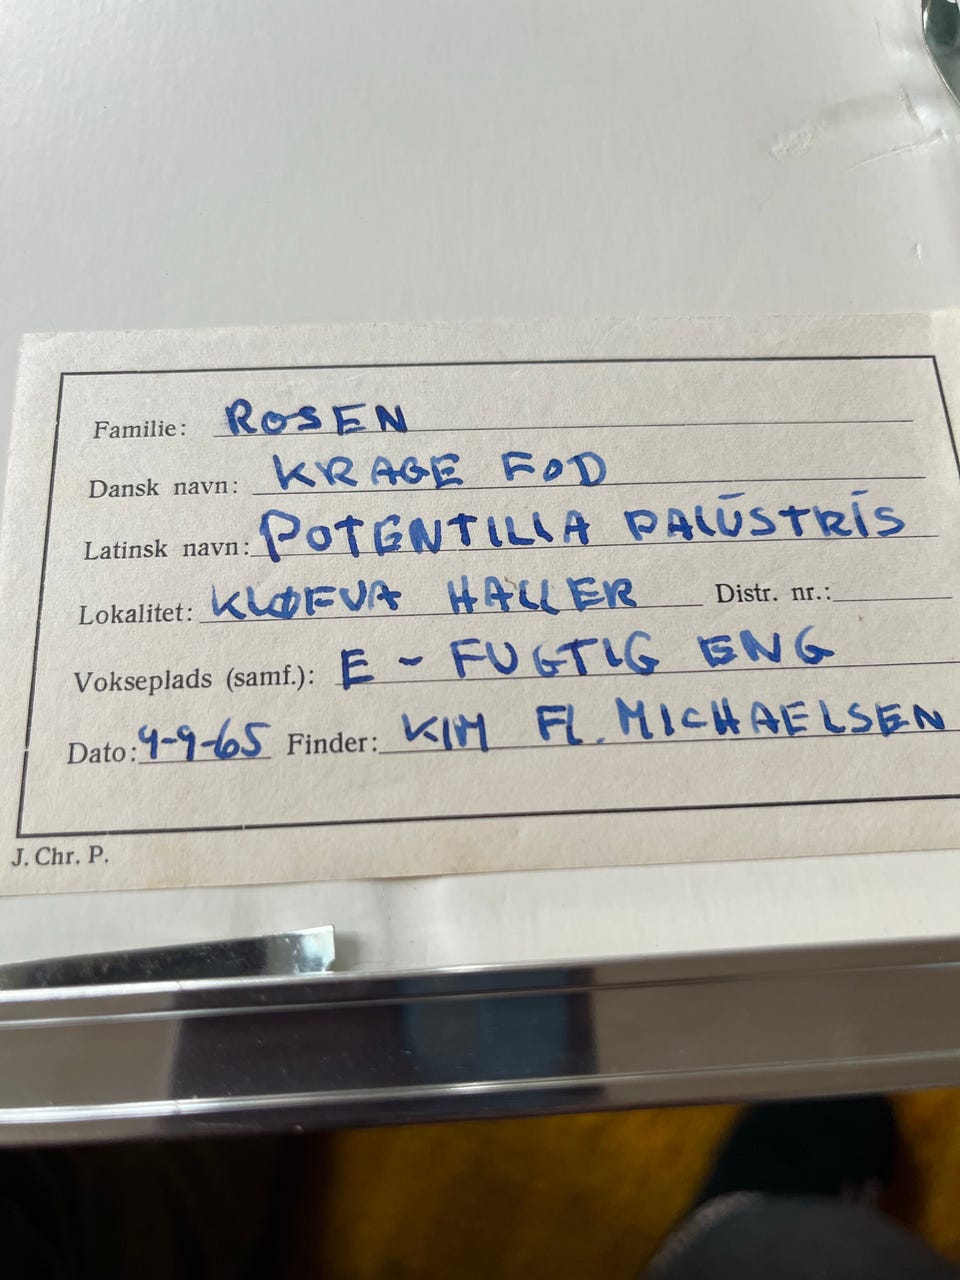 Familie: ROSEN
Dansk navn: KRAGE FOD
Latinsk navn: POTENTILLA PALŪSTRĪS
Lokalitet: KLØEVA HALLER Distr. nr.:
Vokseplads (samf.): E - FUGTIG ENG
Dato: 9-9-65 Finder: KIM Fl. MICHAELSEN
J. Chr. P.